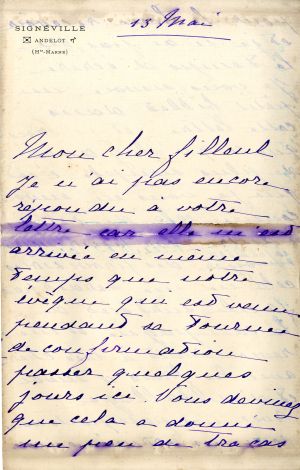 SIGNÉVILLE
ANDELOT
(Hte-MARNE)
13 Mai
Mon cher filleul
Je n'ai pas encore
répondu à votre
lettre car elle m'est
arrivée en même
temps que notre
évêque qui est venu
pendant sa tournée
de confirmation
passer quelques
jours ici. Vous devinez
que cela a donné
un peu de tracas